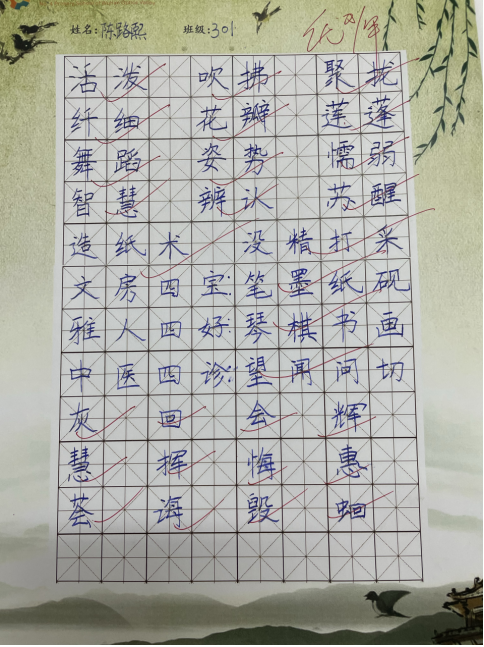 姓名:陈路熙 班级:301
活泼 吹拂 聚拢
纤细 花瓣 莲蓬
舞蹈 姿势 懦弱
智慧 辨认 苏醒
造纸术 没精打采
文房四宝:笔墨纸砚
雅人四好:琴棋书画
中医四诊:望闻问切
灰 回 会 辉
慧 挥 悔 惠
荟 诲 毁 蛔